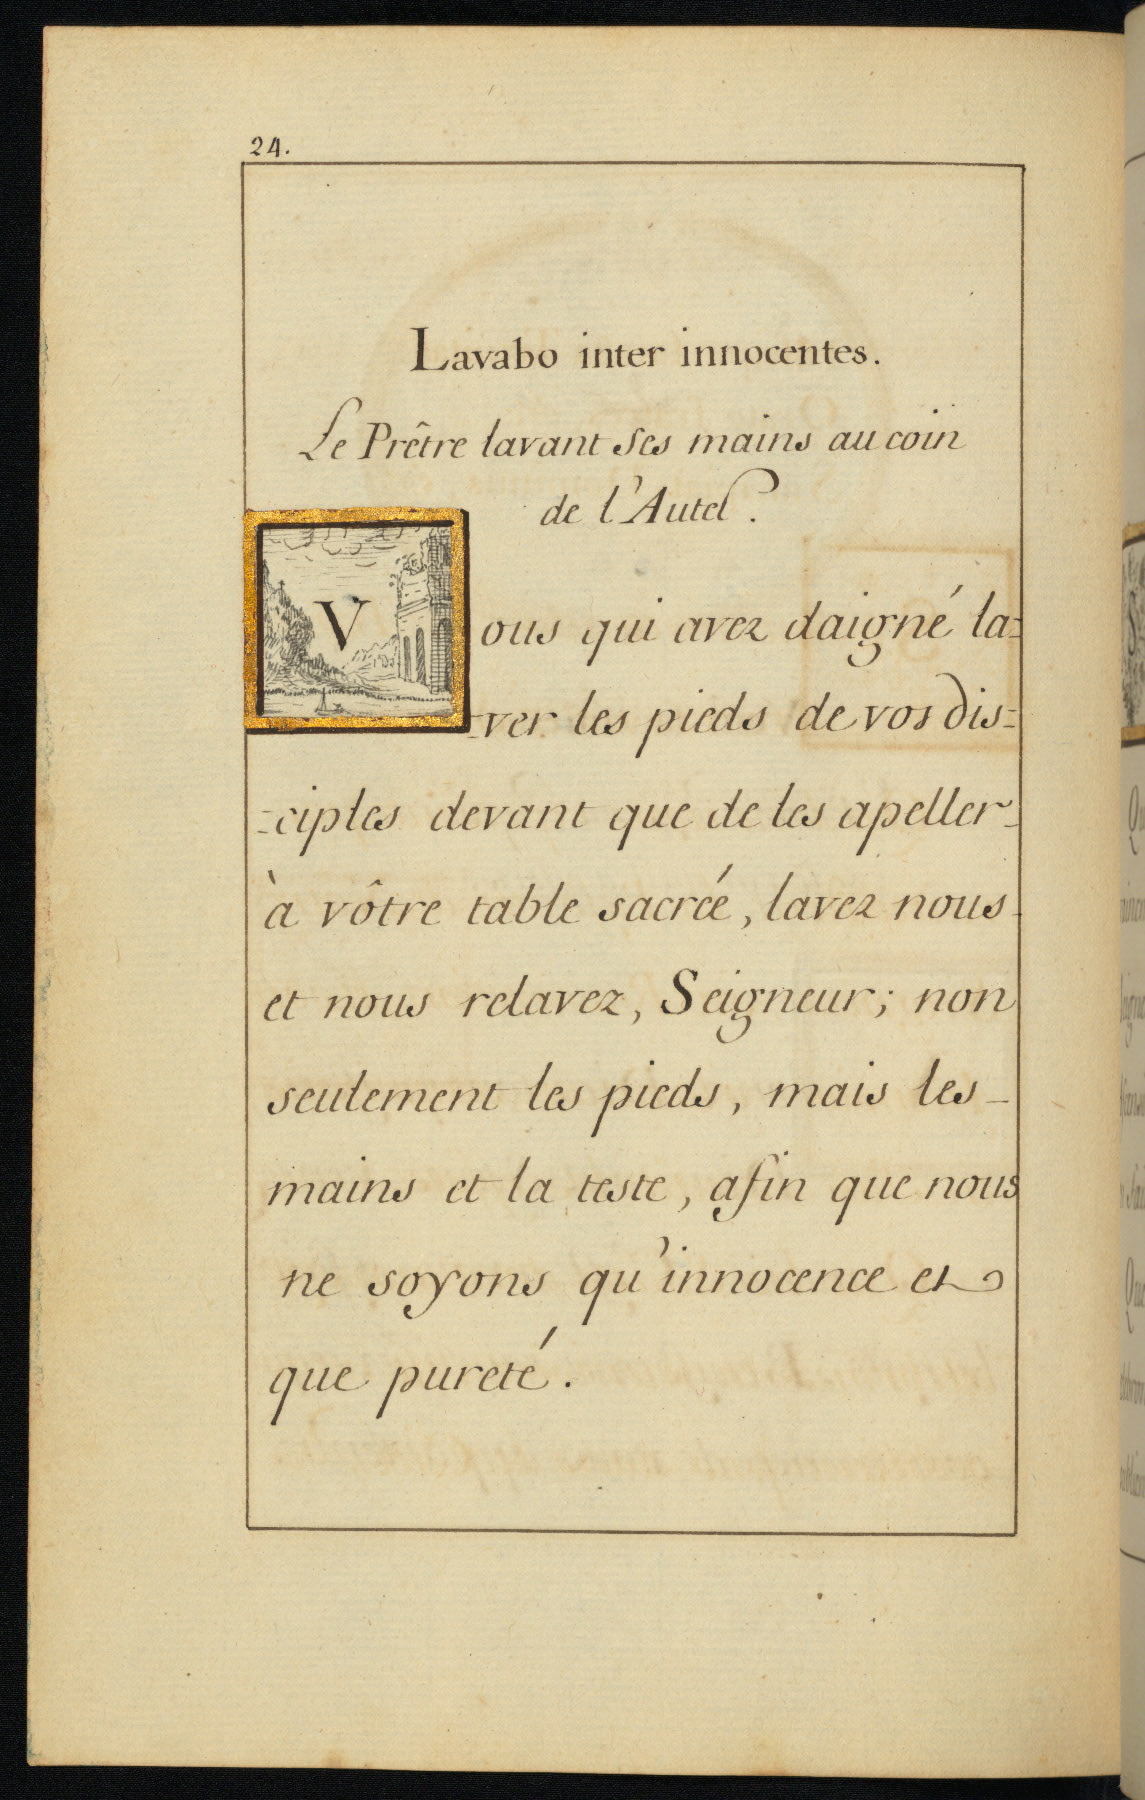 24.
Lavabo inter innocentes.
Le Prêtre lavant Ses mains au coin
de l'Autel.
Vous qui avez daigné la=
=ver les pieds de vos dis=
=ciples devant que de les apeller
à vôtre table sacrée, lavez nous
et nous relavez, Seigneur; non
seulement les pieds, mais les
mains et la teste, afin que nous
ne soyons qu'innocence et
que pureté.